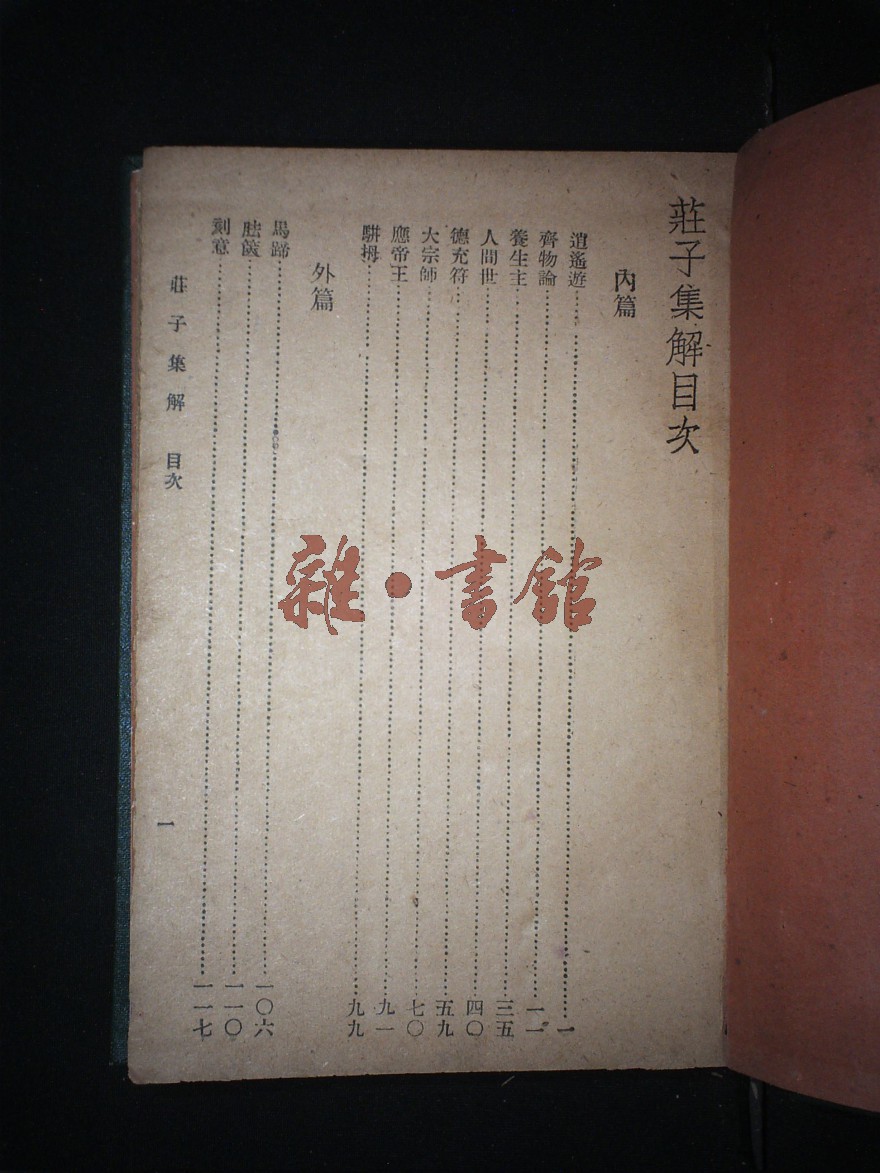 莊子集解目次
內篇
逍遙遊……一
齊物論……一一
養生主……三五
人間世……四〇
德充符……五九
大宗師……七〇
應帝王……九一
駢拇……九九
外篇
馬蹄……一〇六
胠篋……一一〇
刻意……一一七
莊子集解 目次
一
雜·書館